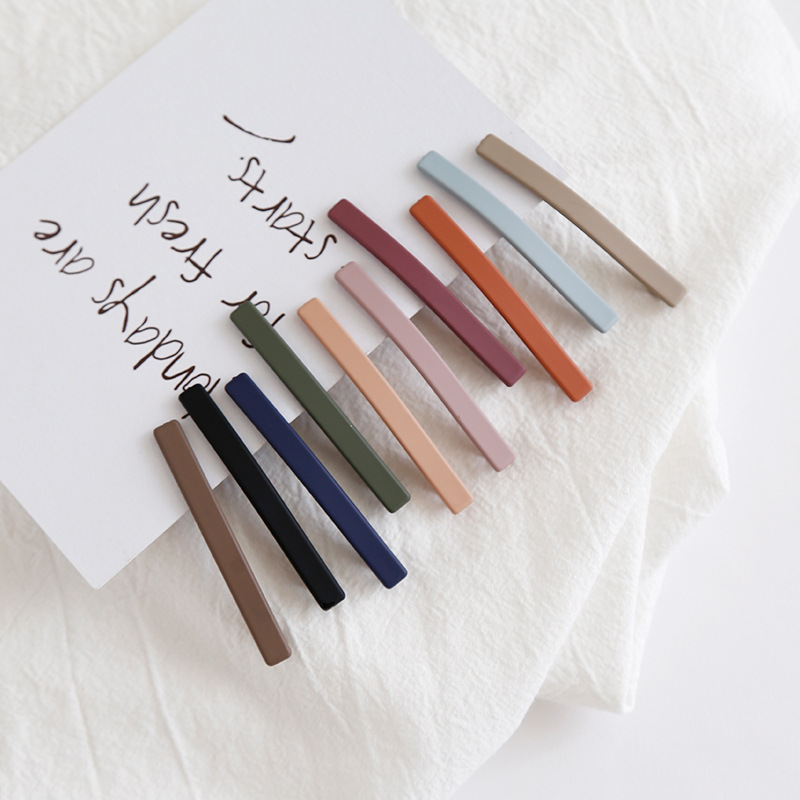 ondays are
for fresh
starts.